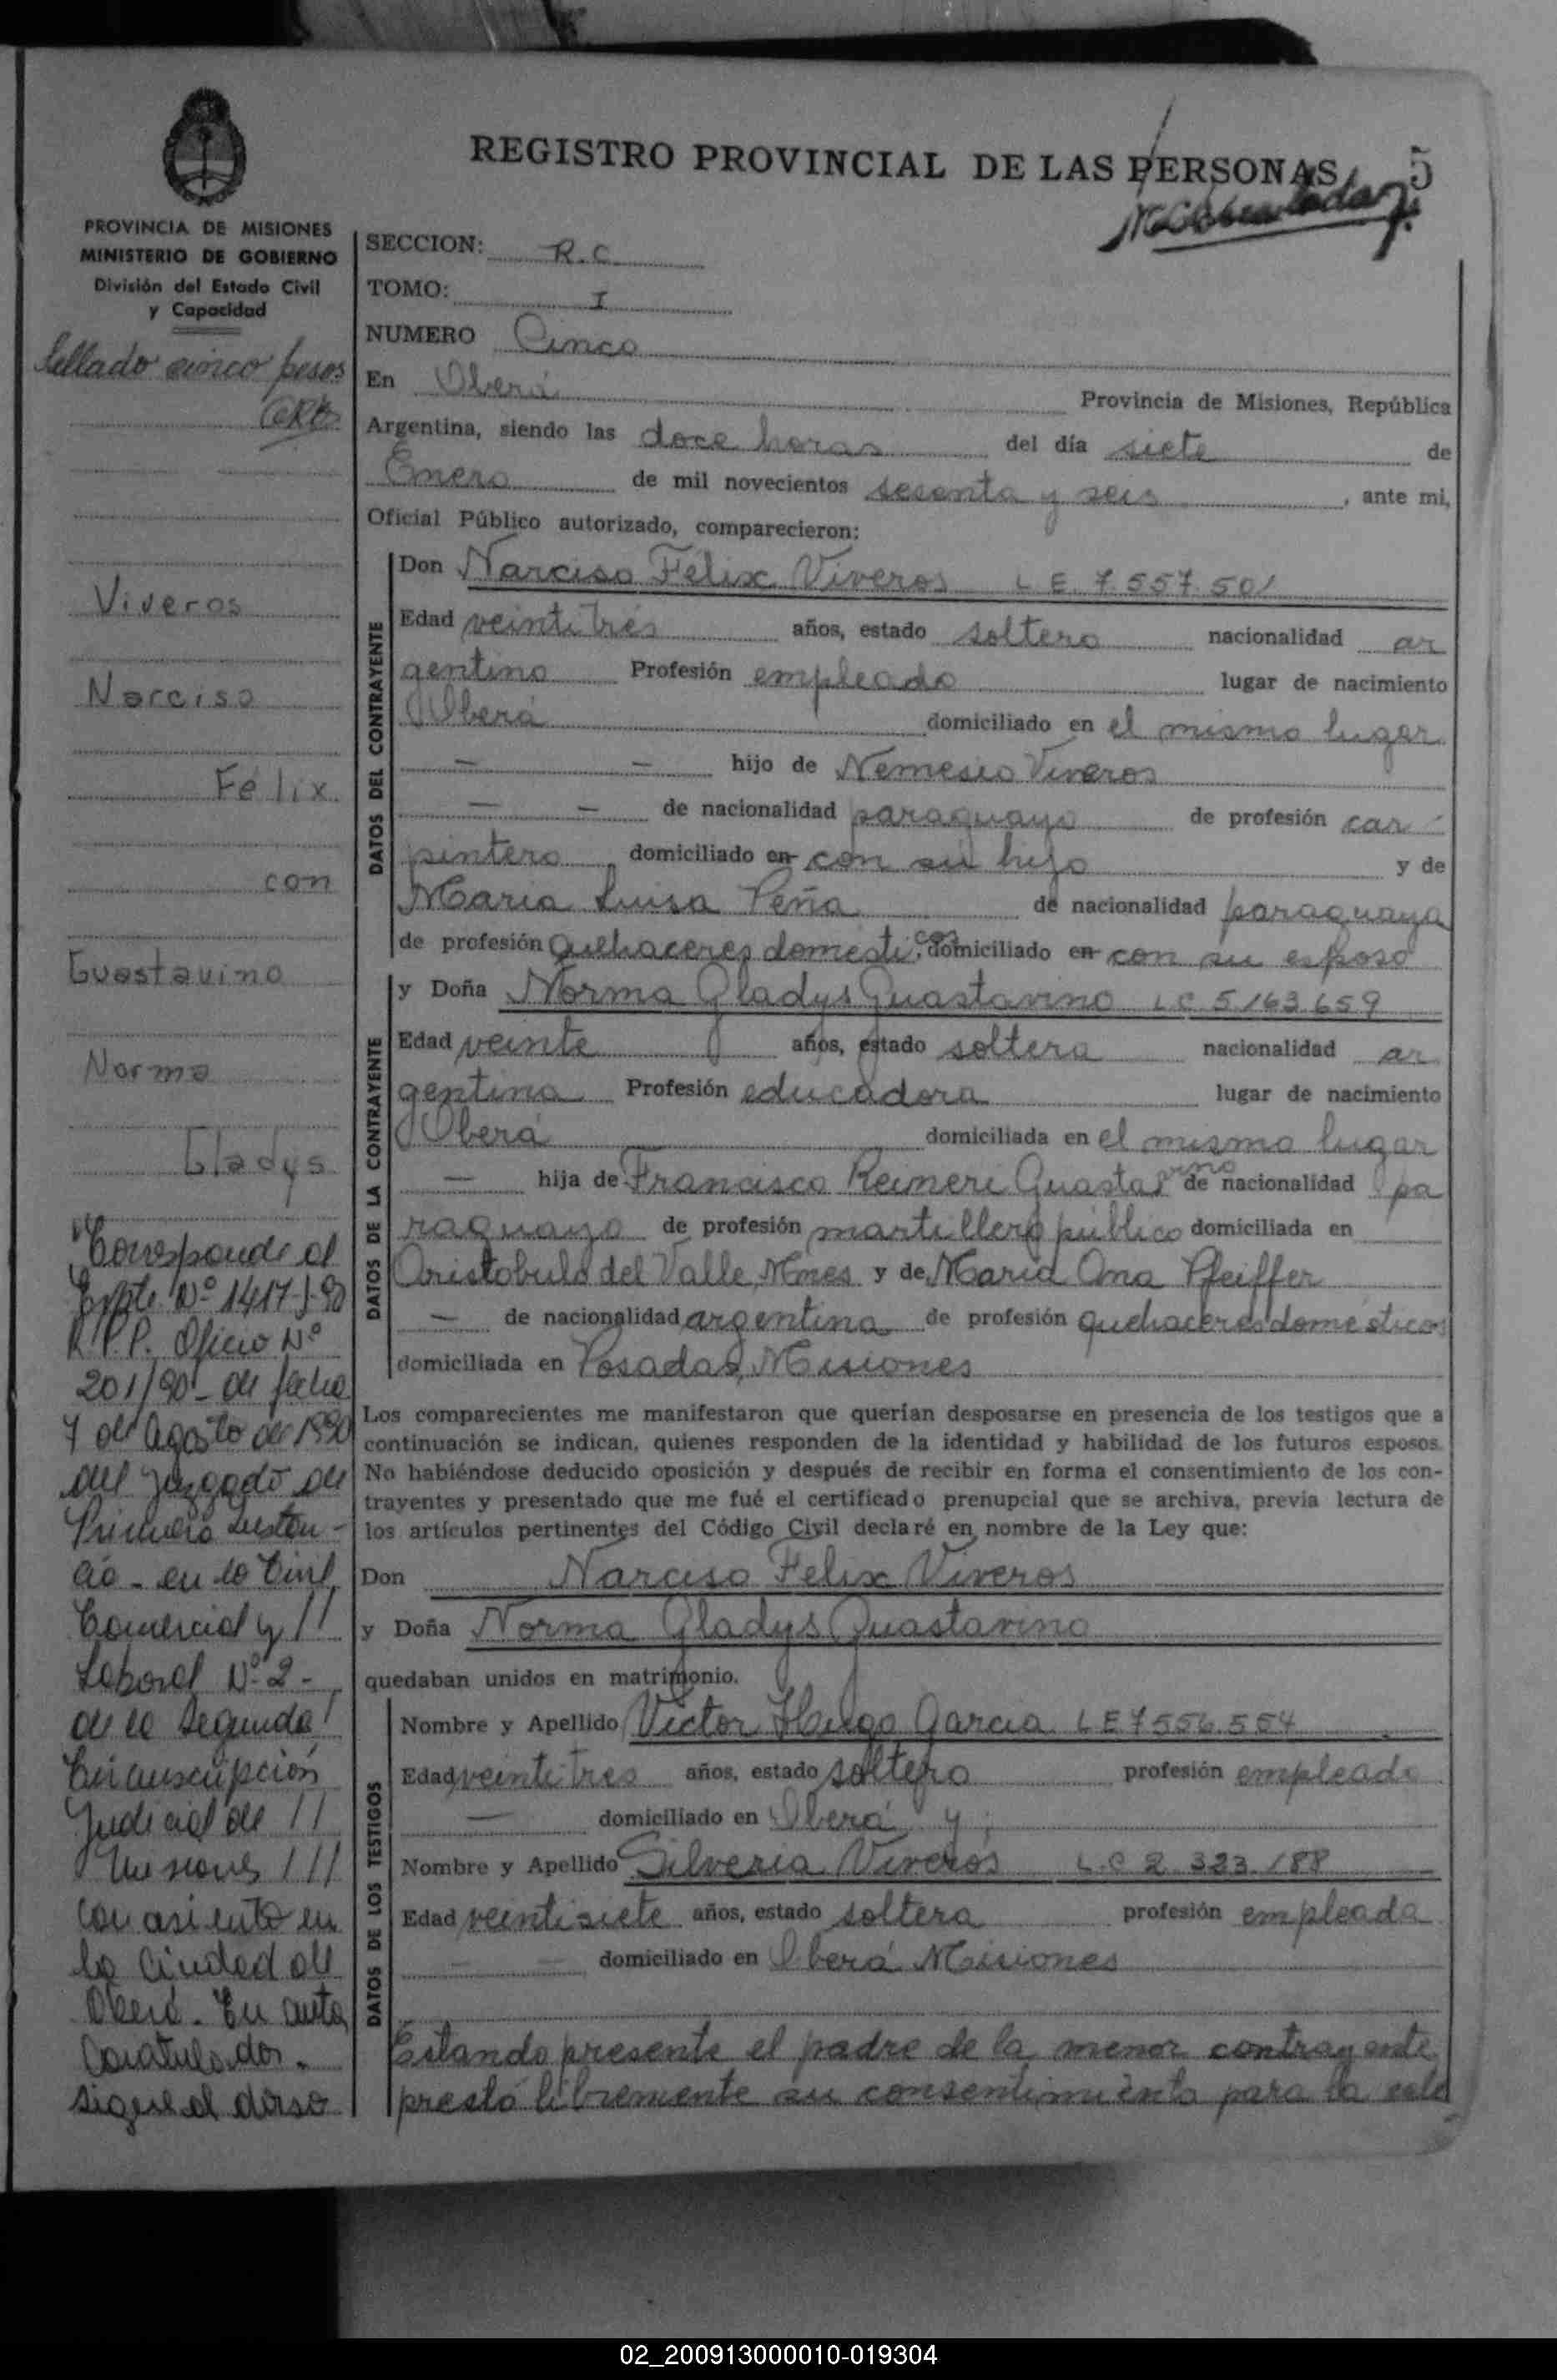 REGISTRO PROVINCIAL DE LAS PERSONAS
5
PROVINCIA DE MISIONES
MINISTERIO DE GOBIERNO
División del Estado Civil
y Capacidad
Sellado cinco pesos
Viveros
Narciso
Félix
con
Guastavino
Norma
Gladys
Corresponde al
Expte. Nº 1417-J-90
R.P.P. Oficio Nº
201/90 - de fecha
7 de Agosto de 1990
del Juzgado de
Primera Instan-
cia - en lo Civil,
Comercial y //
Laboral Nº 2 -
de la Segunda /
Circunscripción
Judicial de //
Misiones ///
con asiento en
la Ciudad de
Oberá. En autos
Caratulados.
Sigue al dorso
SECCION: R.C.
TOMO: I
NUMERO Cinco
En Oberá Provincia de Misiones, República
Argentina, siendo las doce horas del día siete de
Enero de mil novecientos sesenta y seis, ante mi,
Oficial Público autorizado, comparecieron:
DATOS DEL CONTRAYENTE
Don Narciso Félix Viveros L E 7.557.501
Edad veintitrés años, estado soltero nacionalidad ar
gentino Profesión empleado lugar de nacimiento
Oberá domiciliado en el mismo lugar
— — hijo de Nemesio Viveros
— — de nacionalidad paraguayo de profesión car
pintero domiciliado en con su hijo y de
Maria Luisa Peña de nacionalidad paraguaya
de profesión quehaceres domesticos, domiciliado en con su esposo
DATOS DE LA CONTRAYENTE
y Doña Norma Gladys Guastavino L.C 5.163.659
Edad veinte años, estado soltera nacionalidad ar
gentina Profesión educadora lugar de nacimiento
Oberá domiciliada en el mismo lugar
— hija de Francisco Reineri Guastavino de nacionalidad pa
raguayo de profesión martillero público domiciliada en
Aristobulo del Valle, Mnes y de Maria Ana Pfeiffer
— de nacionalidad argentina de profesión quehaceres domésticos
domiciliada en Posadas, Misiones
Los comparecientes me manifestaron que querían desposarse en presencia de los testigos que a
continuación se indican, quienes responden de la identidad y habilidad de los futuros esposos.
No habiéndose deducido oposición y después de recibir en forma el consentimiento de los con-
trayentes y presentado que me fué el certificado prenupcial que se archiva, previa lectura de
los artículos pertinentes del Código Civil declaré en nombre de la Ley que:
Don Narciso Felix Viveros
y Doña Norma Gladys Guastavino
quedaban unidos en matrimonio.
DATOS DE LOS TESTIGOS
Nombre y Apellido Victor Hugo Garcia L E 7556.554
Edad veintitres años, estado soltero profesión empleado
— domiciliado en Oberá y;
Nombre y Apellido Silveria Viveros L.C 2.323.188
Edad veintisiete años, estado soltera profesión empleada
— — domiciliado en Oberá Misiones
Estando presente el padre de la menor contrayente
prestó libremente su consentimiento para la cele
02_200913000010-019304